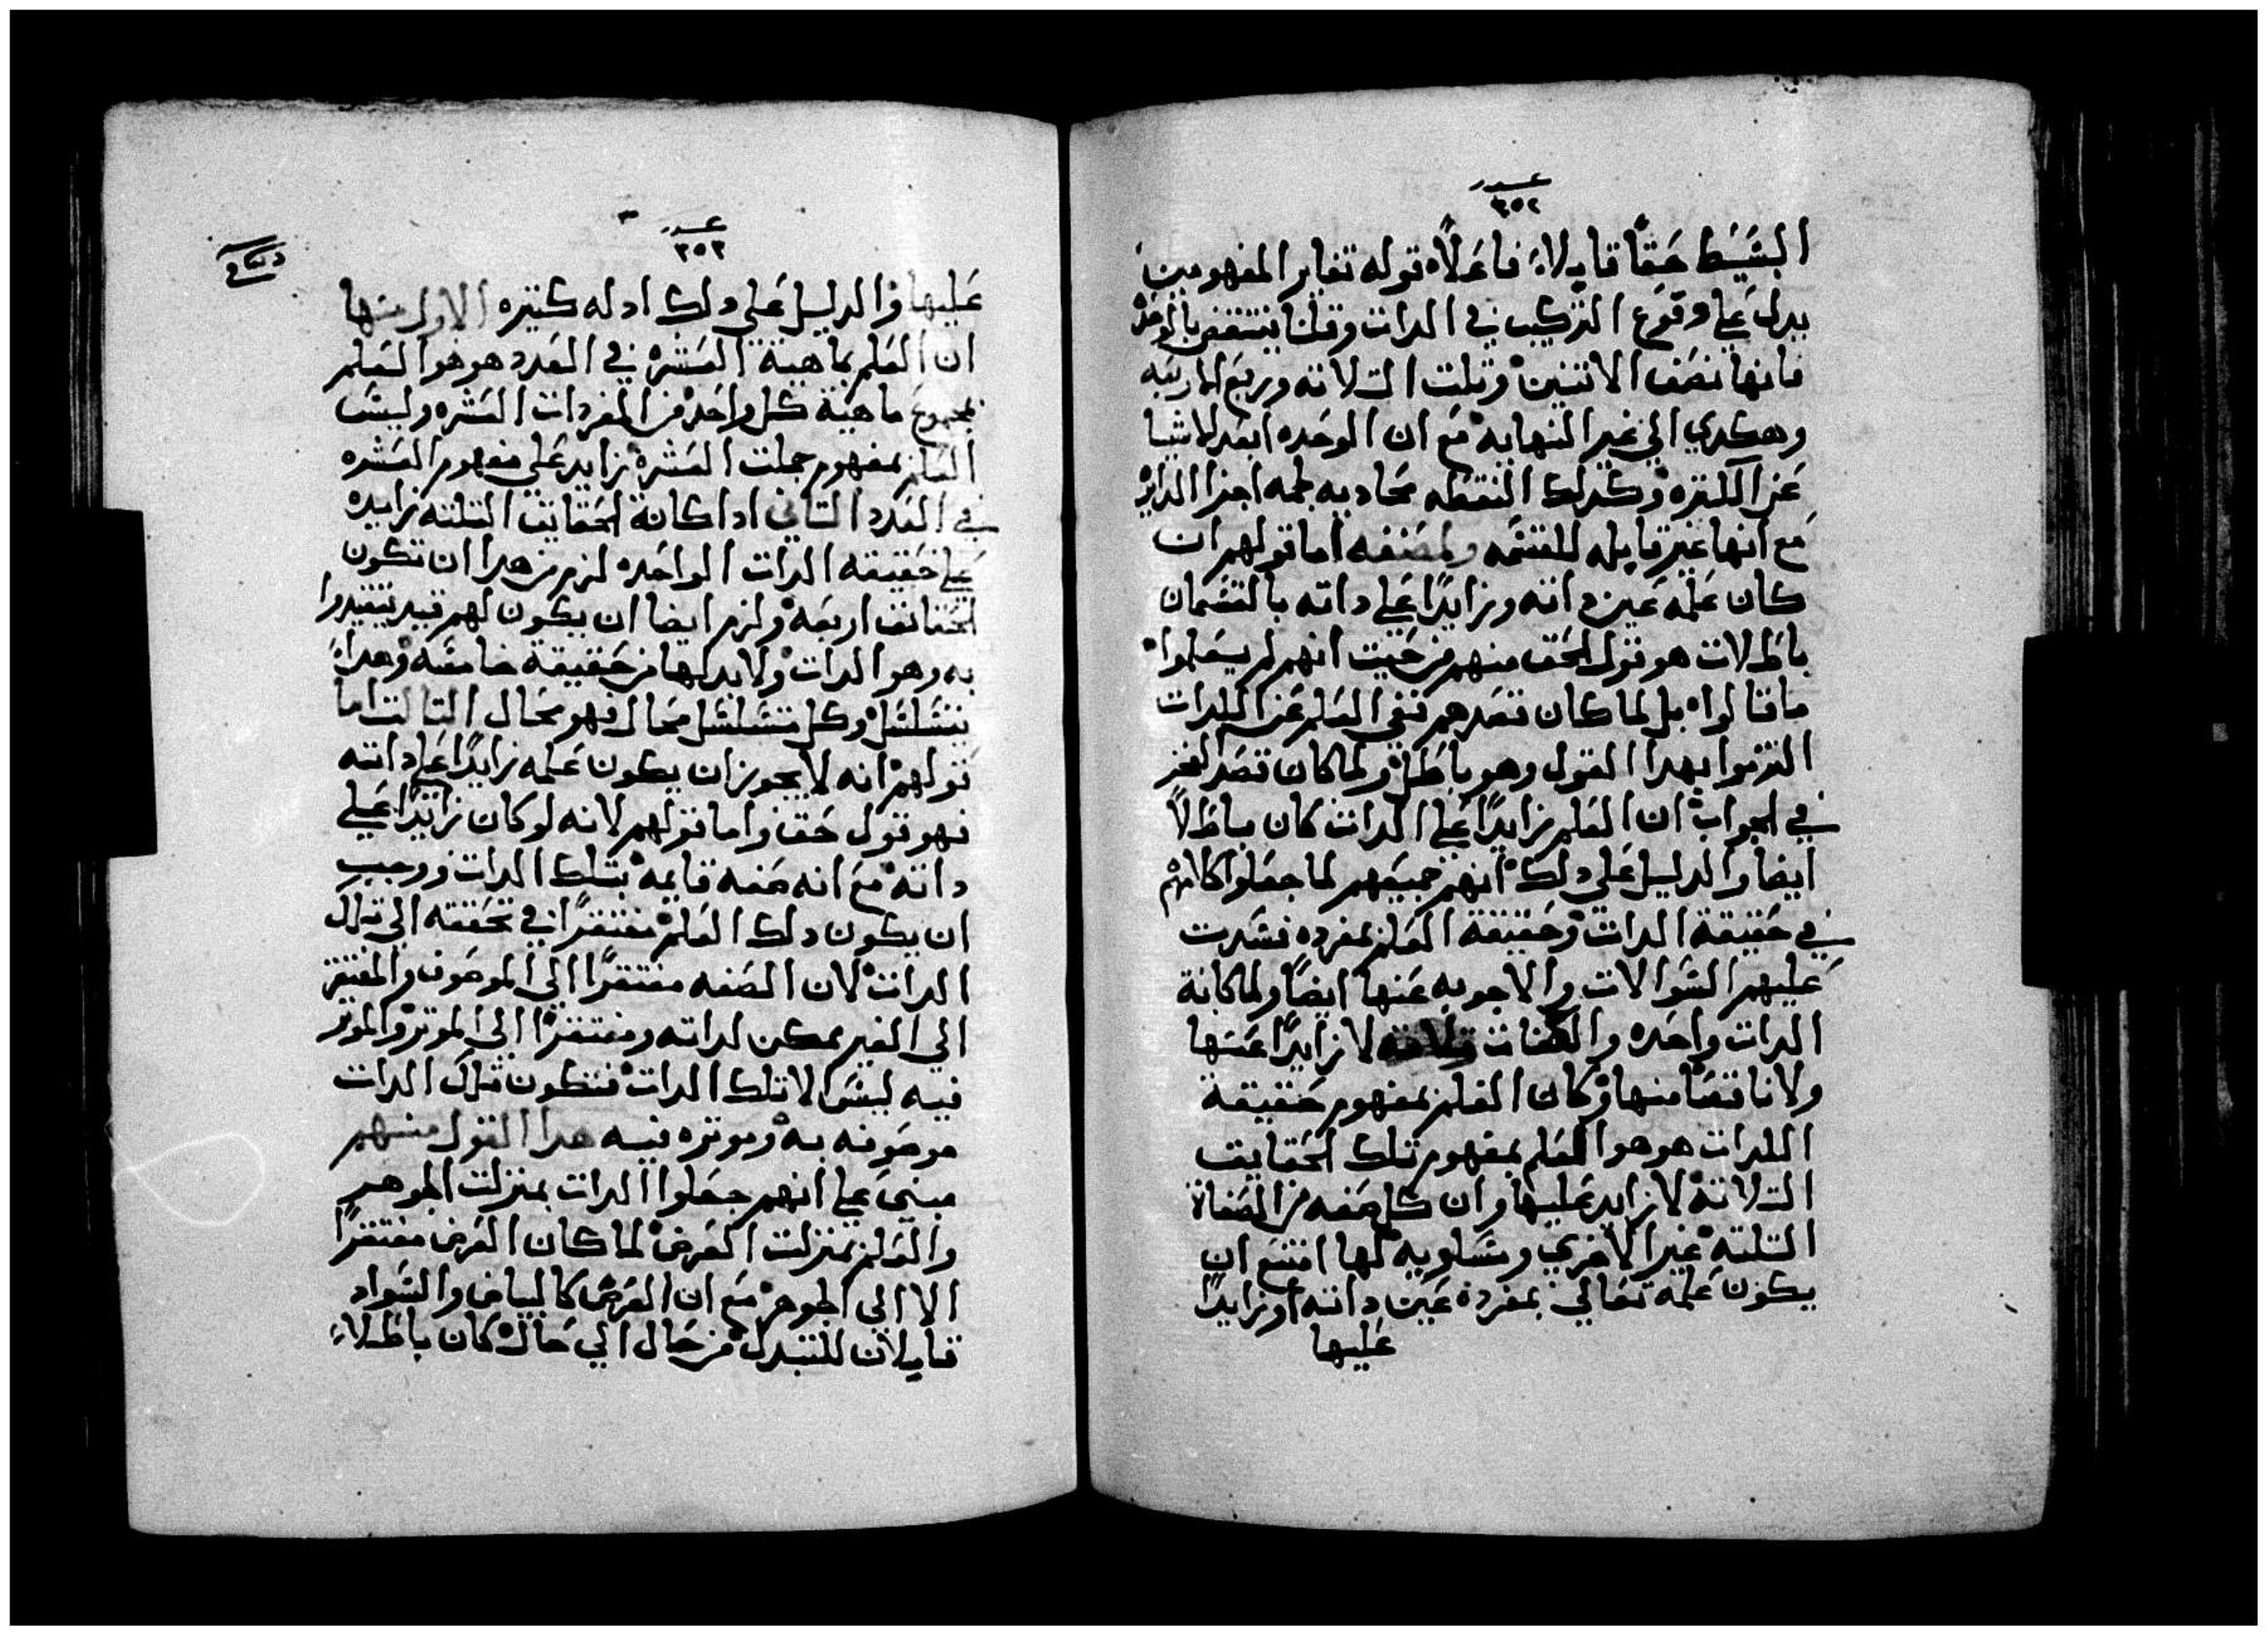 عدد
٣٥٢
البسيط حقًا قابلاً فاعلاً قوله تغاير المفهومين
يدل علي وقوع التركيب في الدات وقلنا ينتقض بالوحده
فانها نصف الاتنين وتلت التلاته وربع الاربعه
وهكدي الي غير النهايه مع ان الوحده ابعد الاشيا
عن الكتره وكدلك النقطه محاديه لجمله اجزا الدايره
مع انها غير قابله للقسمه اما قولهم ان
كان علمه عين داته وزايدًا علي داته بالقسمان
باطلات هو قول الحق منهم من حيت انهم لم يعلموا
ما قالوا بل لما كان قصدهم نفي العلم عن الدات
التزموا بهدا القول وهو باطل ولما كان قصد الفخر
في الجواب ان العلم زايدًا علي الدات كان باطلاً
ايضا والدليل علي دلك انهم جميعهم لما جعلوا كلامهم
في حقيقة الدات وحقيقة العلم بمفرده فسدت
عليهم السوالات والاجوبه عنها ايضًا ولما كانة
الدات واحده والصفات تلاته لا زايدًا عنها
ولا ناقصًا منها وكان العلم بمفهوم حقيقة
الدات هو هوا العلم بمفهوم تلك الحقايق
التلاته لا زايد عليها وان كل صفه من الصفاة
التلته غير الاخري ومساويه لها امتنع ان
يكون علمه تعالي بمفرده عين داته او زايدًا
عليها
عدد
٣٥٣
عليها والدليل علي دلك ادله كتيره الاول منها
ان العلم بماهية العشره في العدد هو هوا لعلم
بمجموع ماهية كل واحد من المفردات العشره وليس
العلم بمفهوم جملت العشره زايد علي مفهوم العشره
في العدد التاني ادا كانة الحقايق التلته زايده
علي حقيقه الدات الواحده لزم من هدا ان تكون
الحقائق اربعه ولزم ايضا ان يكون لهم قيد يتقيدوا
به وهو الدات ولا بد لها من حقيقة خامسه وهدا
يتسلسل وكل متسلسل محال فهو محال التالت اما
قولهم انه لا يجوز ان يكون علمه زايدًا علي داته
فهو قول حق واما قولهم لانه لو كان زايدًا علي
داته مع انه صفه قايمه بتلك الدات ووجب
ان يكون دلك العلم مفتقرًا في تحققه الي تلك
الدات لان الصفه مفتقرًا الي الموصوف والمفتقر
الي الغير ممكن لداته ومفتقرًا الي الموتر والموتر
فيه ليس الا تلك الدات فتكون تلك الدات
موصوفه به وموتره فيه هدا القول منهم
مبني علي انهم جعلوا الدات بمنزلت الجوهر
والعلم بمنزلت العرض لما كان العرض مفتقرًا
الا الي الجوهر مع ان العرض كالبياض والسواد
قابلان للتبدل من حال الي حال كان باطلاً